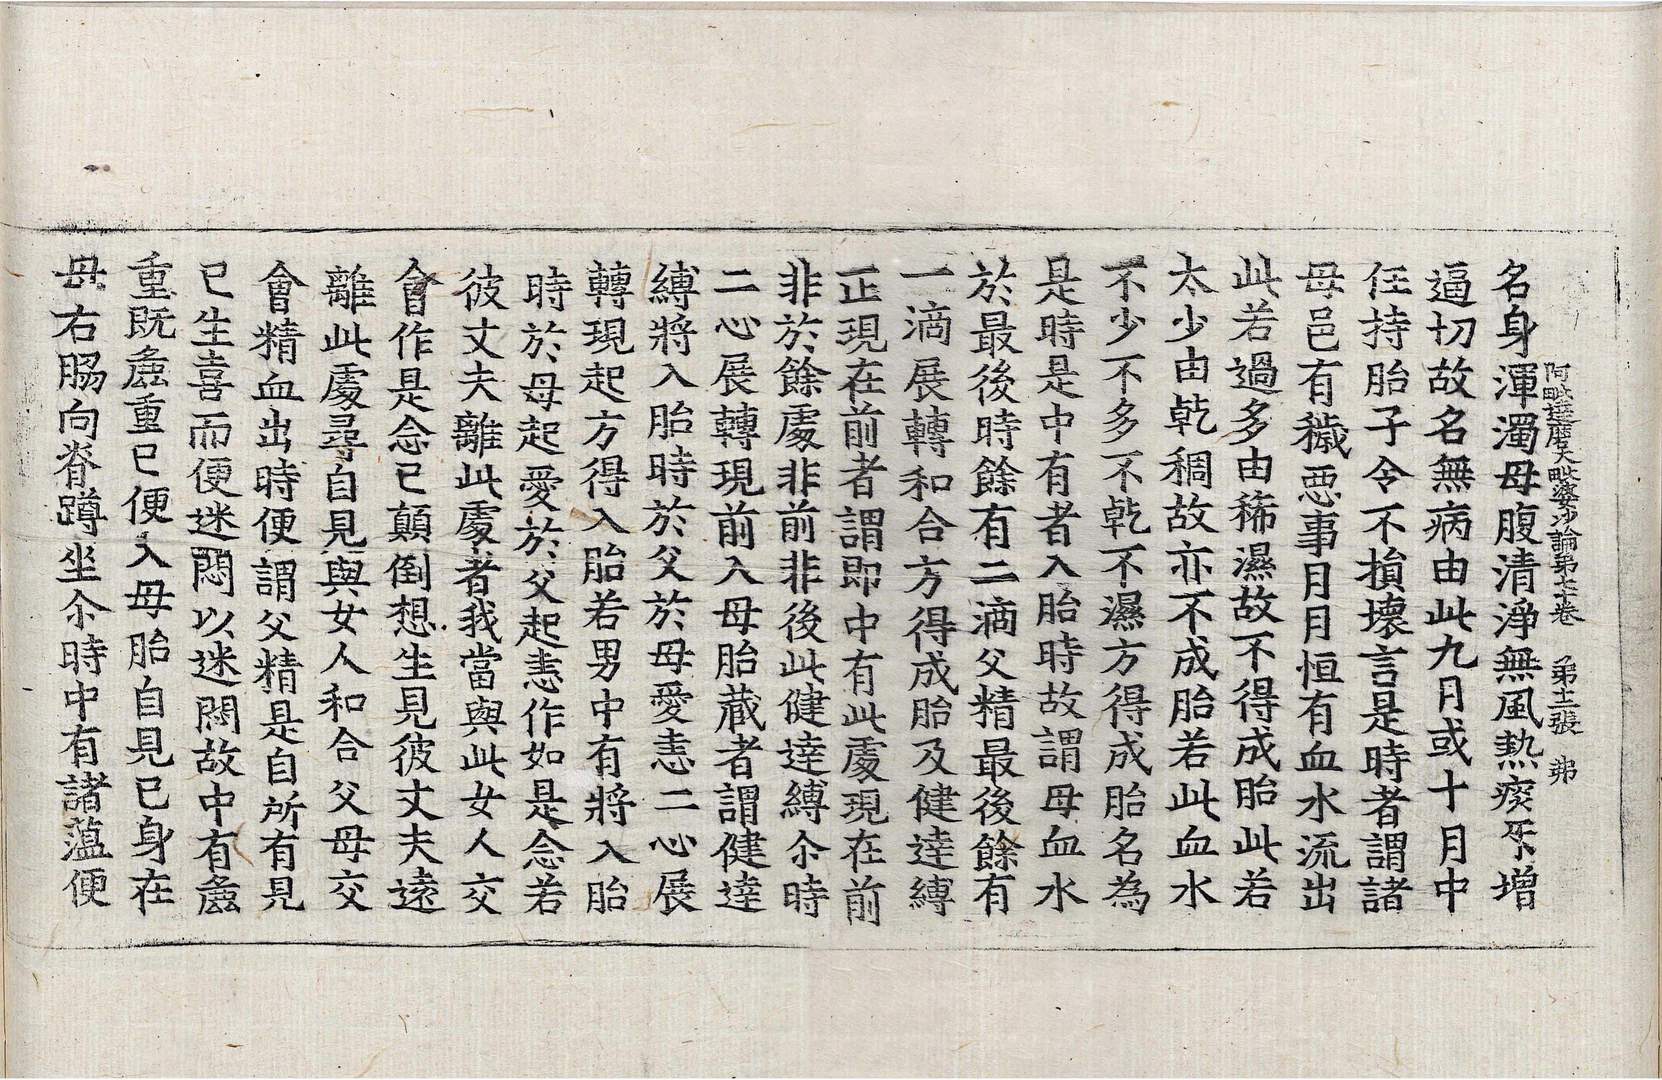 阿毗達磨大毗婆沙論第七十卷 第十二張 弗
名身渾濁母腹清淨無風熱痰互增
逼切故名無病由此九月或十月中
任持胎子令不損壞言是時者謂諸
母邑有穢惡事月月恒有血水流出
此若過多由稀濕故不得成胎此若
太少由乾稠故亦不成胎若此血水
不少不多不乾不濕方得成胎名為
是時是中有者入胎時故謂母血水
於最後時餘有二滴父精最後餘有
一滴展轉和合方得成胎及健達縛
正現在前者謂即中有此處現在前
非於餘處非前非後此健達縛尒時
二心展轉現前入母胎藏者謂健達
縛將入胎時於父於母愛恚二心展
轉現起方得入胎若男中有將入胎
時於母起愛於父起恚作如是念若
彼丈夫離此處者我當與此女人交
會作是念已顛倒想生見彼丈夫遠
離此處尋自見與女人和合父母交
會精血出時便謂父精是自所有見
已生喜而便迷悶以迷悶故中有麁
重既麁重已便入母胎自見已身在
母右脇向脊蹲坐尒時中有諸蘊便